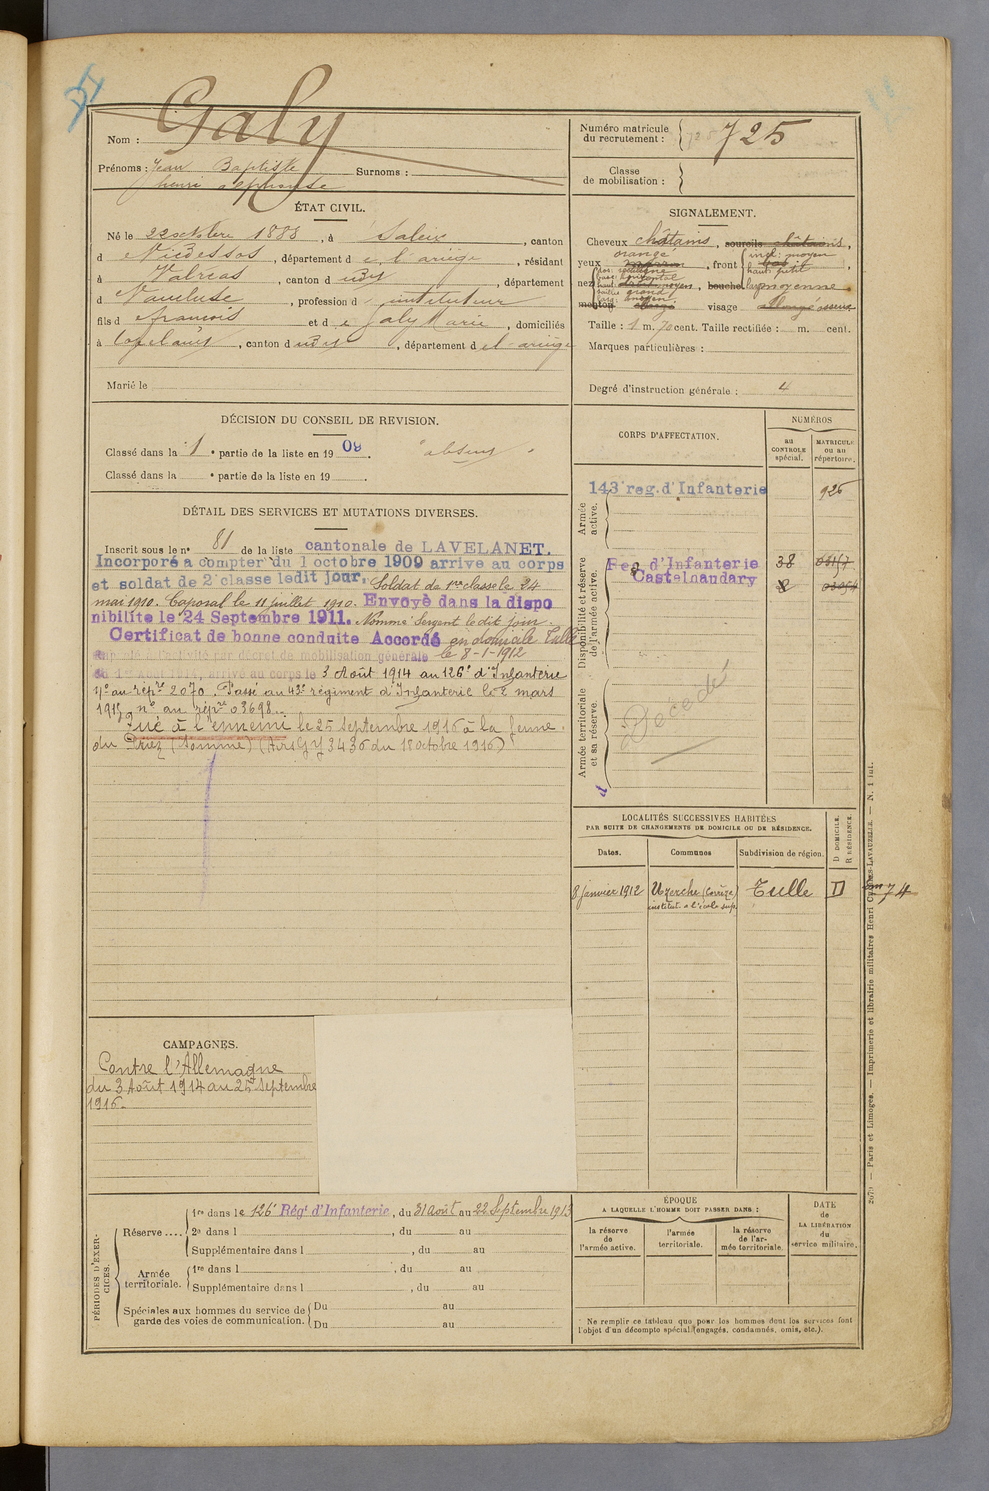 Nom : Galy
Prénoms : Jean Baptiste Surnoms :
henri alphonse
ÉTAT CIVIL.
Né le 22 octobre 1888, à Saleix, canton
d Vicdessos, département d e l'ariège, résidant
à Valréas, canton d udy, département
d Vaucluse, profession d instituteur
fils d françois et d e Galy Marie, domiciliés
à canton d udy, département d el-ariège
Marié le
DÉCISION DU CONSEIL DE REVISION.
Classé dans la 1e partie de la liste en 1909. "absent"
Classé dans la e partie de la liste en 19 .
DÉTAIL DES SERVICES ET MUTATIONS DIVERSES.
Inscrit sous le n° 81 de la liste cantonale de LAVELANET.
Incorporé à compter du 1 octobre 1909 arrivé au corps
et soldat de 2e classe ledit jour, Soldat de 1re classe le 24
mai 1910. Caporal le 11 juillet 1910. Envoyé dans la dispo
nibilité le 24 Septembre 1911. Nommé Sergent le dit jour.
Certificat de bonne conduite Accordé en domicile Tulle
Rappelé à l'activité par décret de mobilisation générale le 8-1-1912
du 1er Août 1914, arrivé au corps le 3 Août 1914 au 126e d'Infanterie
N° au répre 2070. Passé au 43e régiment d'Infanterie le 2 mars
1915, n° au répre 03698.
Tué à l'ennemi le 25 Septembre 1916 à la ferme
du Priez (Somme) (Avis G Y 3436 du 18 octobre 1916)
CAMPAGNES.
Contre l'Allemagne
du 3 Août 1914 au 25 Septembre
1916.
PÉRIODES D'EXERCICES.
Réserve .... 1re dans le 126e Régt d'Infanterie, du 31 août au 22 Septembre 1913
2e dans l , du au
Supplémentaire dans l , du au
Armée territoriale. 1re dans l , du au
Supplémentaire dans l , du au
Spéciales aux hommes du service de garde des voies de communication. Du au
Du au
Numéro matricule du recrutement : 725
Classe de mobilisation :
SIGNALEMENT.
Cheveux châtains, sourcils châtains,
orange
yeux marron, front incl: moyen
haut: petit
nez dos: rectiligne
base: horizontal
haut: moyen, bouche moyenne
saillie grand
larg: moyen
menton visage allongé osseux
Taille : 1 m. 70 cent. Taille rectifiée : m. cent.
Marques particulières :
Degré d'instruction générale : 4
CORPS D'AFFECTATION.
NUMÉROS
au CONTROLE spécial.
MATRICULE ou au répertoire.
Armée active.
143e reg. d'Infanterie 926
Disponibilité et réserve de l'armée active.
Reg. d'Infanterie 38
Castelnaudary
Armée territoriale et sa réserve.
Décédé
LOCALITÉS SUCCESSIVES HABITÉES
PAR SUITE DE CHANGEMENTS DE DOMICILE OU DE RÉSIDENCE.
Dates. Communes Subdivision de région. D DOMICILE. R RÉSIDENCE.
8 janvier 1912 Uzerche (Corrèze) Tulle D
institut. à l'école sup.
74
ÉPOQUE
A LAQUELLE L'HOMME DOIT PASSER DANS :
la réserve de l'armée active.
l'armée territoriale.
la réserve de l'armée territoriale.
DATE de LA LIBÉRATION du service militaire.
Ne remplir ce tableau que pour les hommes dont les services font
l'objet d'un décompte spécial (engagés, condamnés, omis, etc.).
2079 — Paris et Limoges. — Imprimerie et librairie militaires Henri CHARLES-LAVAUZELLE. — N. 1